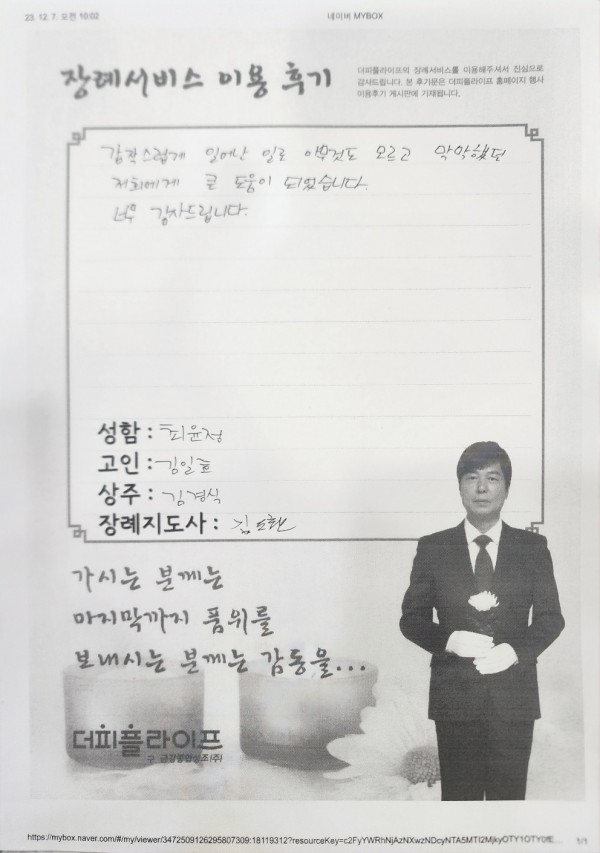 23. 12. 7. 오전 10:02
네이버 MYBOX
장례서비스 이용 후기
더피플라이프의 장례서비스를 이용해주셔서 진심으로
감사드립니다. 본 후기문은 더피플라이프 홈페이지 행사
이용후기 게시판에 기재됩니다.
갑작스럽게 일어난 일로 아무것도 모르고 막막했던
저희에게 큰 도움이 되었습니다.
너무 감사드립니다.
성함 : 최윤정
고인 : 김일호
상주 : 김경식
장례지도사 : 김도환
가시는 분께는
마지막까지 품위를
보내시는 분께는 감동을...
더피플라이프
구 금강종합상조(주)
1/1